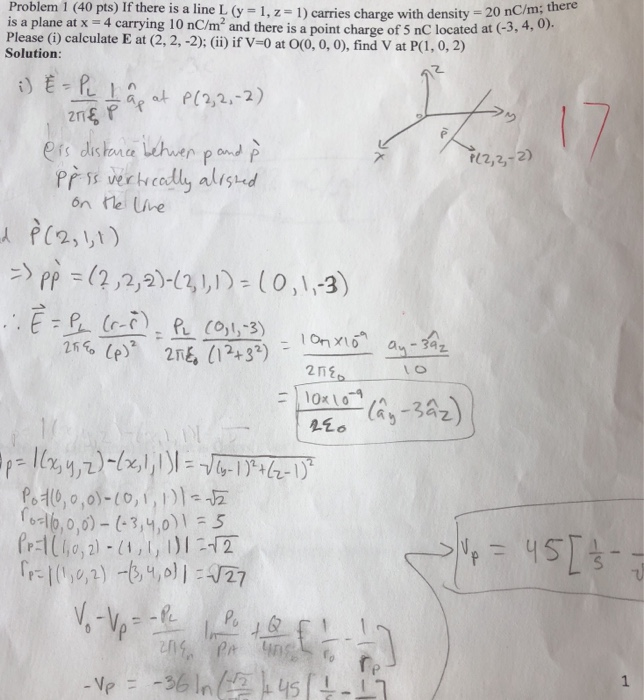 Problem 1 (40 pts) If there is a line L (y = 1, z = 1) carries charge with density = 20 nC/m; there
is a plane at x = 4 carrying 10 nC/m² and there is a point charge of 5 nC located at (-3, 4, 0).
Please (i) calculate E at (2, 2, -2); (ii) if V=0 at O(0, 0, 0), find V at P(1, 0, 2)
Solution:
i) E⃗ = ρL/2πε₀ 1/ρ âρ at P(2,2,-2)
z
y
x
p̀
P(2,2,-2)
17
ρ is distance between p and p̀
pp̀ is vertically aligned
on the line
p̀(2,1,1)
=> pp̀ = (2,2,2)-(2,1,1) = (0,1,-3)
∴ E⃗ = ρL/2πε₀ (r-r̀)/(ρ)² = ρL/2πε₀ (0,1,-3)/(1²+3²) = 10n×10⁻⁹/2πε₀ ay-3âz/10
= 10×10⁻⁹/2ε₀ (ây-3âz)
ρ = |(x,y,z)-(x,1,1)| = √(y-1)²+(z-1)²
ρ₀=|(0,0,0)-(0,1,1)| = √2
r₀=|(0,0,0)-(-3,4,0)| = 5
ρp=|(1,0,2)-(1,1,1)| = √2
rp=|(1,0,2)-(3,4,0)| = √27
Vp = 45[1/5 -
V₀-Vp = -ρL/2πε₀ ln ρ₀/ρA + Q/4πε₀ [1/r₀ - 1/rp]
-Vp = -36 ln(√2 + 45[1/5 - 1
1